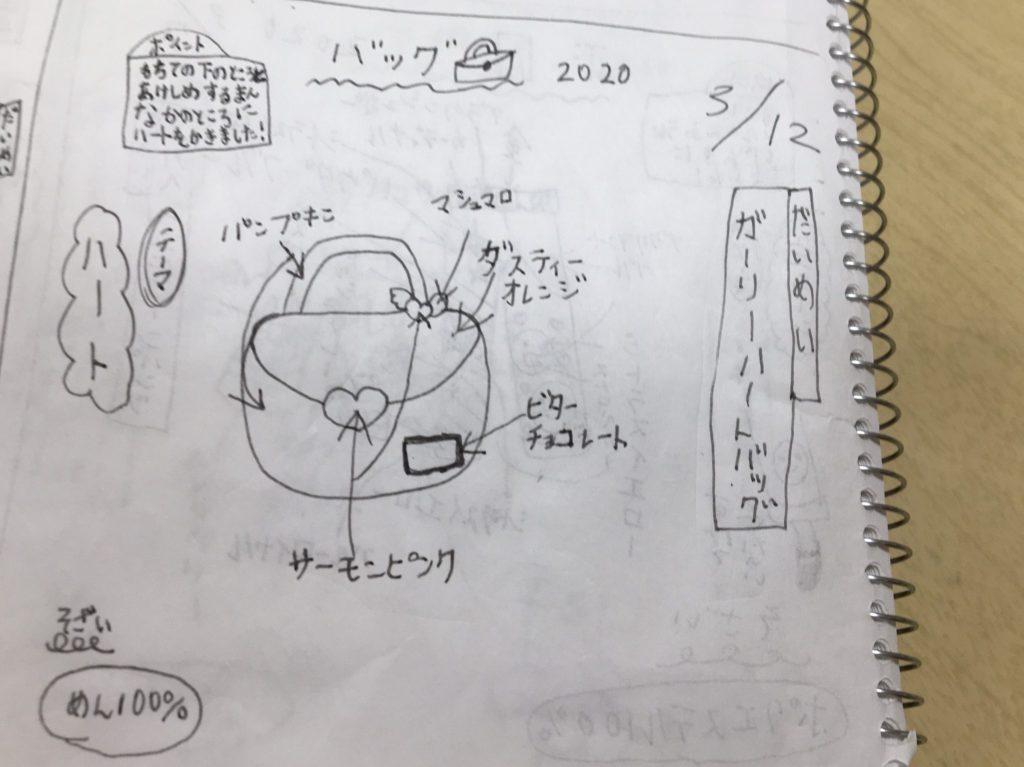 バッグ
2020
3/12
ポイント
もちての下のところと
あけしめするまん
なかのところに
ハートをかきました!
だいめい
ガーリーハートバッグ
テーマ
ハート
パンプキン
マシュマロ
ダスティー
オレンジ
ビター
チョコレート
サーモンピンク
そざい
めん100%
ポリエステル100%